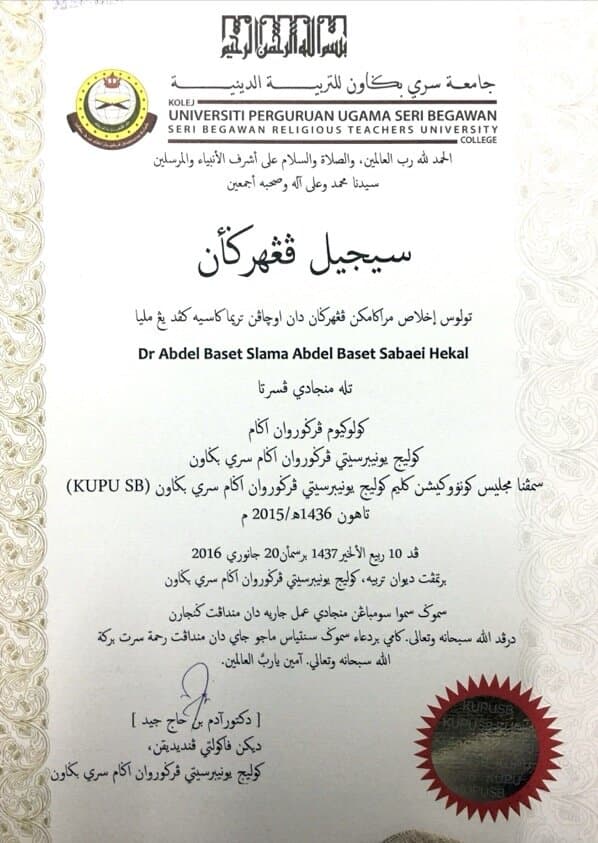 بسم الله الرحمن الرحيم
جامعة سري بڬاون للتربية الدينية
KOLEJ
UNIVERSITI PERGURUAN UGAMA SERI BEGAWAN
SERI BEGAWAN RELIGIOUS TEACHERS UNIVERSITY
COLLEGE
الحمد لله رب العالمين، والصلاة والسلام على أشرف الأنبياء والمرسلين
سيدنا محمد وعلى آله وصحبه أجمعين
سيجيل ڤڠهرڬأن
تولوس إخلاص مراكامكن ڤڠهرڬأن دان اوچاڤن تريماكاسيه كڤد يڠ مليا
Dr Abdel Baset Slama Abdel Baset Sabaei Hekal
تله منجادي ڤسرتا
كولوكيوم ڤرڬوروان اڬام
كوليج يونيۏرسيتي ڤرڬوروان اڬام سري بڬاون
سمڤنا مجليس كونۏوكيشن كليم كوليج يونيۏرسيتي ڤرڬوروان اڬام سري بڬاون (KUPU SB)
تاهون 1436هـ/2015 م
ڤد 10 ربيع الأخير 1437 برسمأن20 جانوري 2016
برتمڤت ديوان تربيه، كوليج يونيۏرسيتي ڤرڬوروان اڬام سري بڬاون
سموڬ سموا سومباڠن منجادي عمل جاريه دان منداڤت ڬنجارن
درڤد الله سبحانه وتعالى. كامي بردعاء سموڬ سنتياس ماجو جاي دان منداڤت رحمة سرت بركة
الله سبحانه وتعالي. آمين ياربَّ العالمين.
[ دكتورآدم بن حاج جيد ]
ديكن فاكولتي ڤنديديقن،
كوليج يونيۏرسيتي ڤرڬوروان اڬام سري بڬاون
KUPUSB
KUPUSB
KUPU